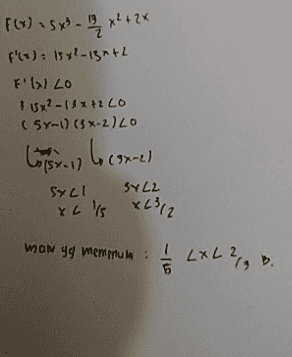 F(x) = 5x³ - 13/2 x² + 2x
F'(x) = 15x² - 13x + 2
F'(x) < 0
15x² - 13x + 2 < 0
(5x-1) (3x-2) < 0
(5x-1) (3x-2)
5x < 1 3x < 2
x < 1/5 x < 3/2
: 1/5 < x < 2/3 B.